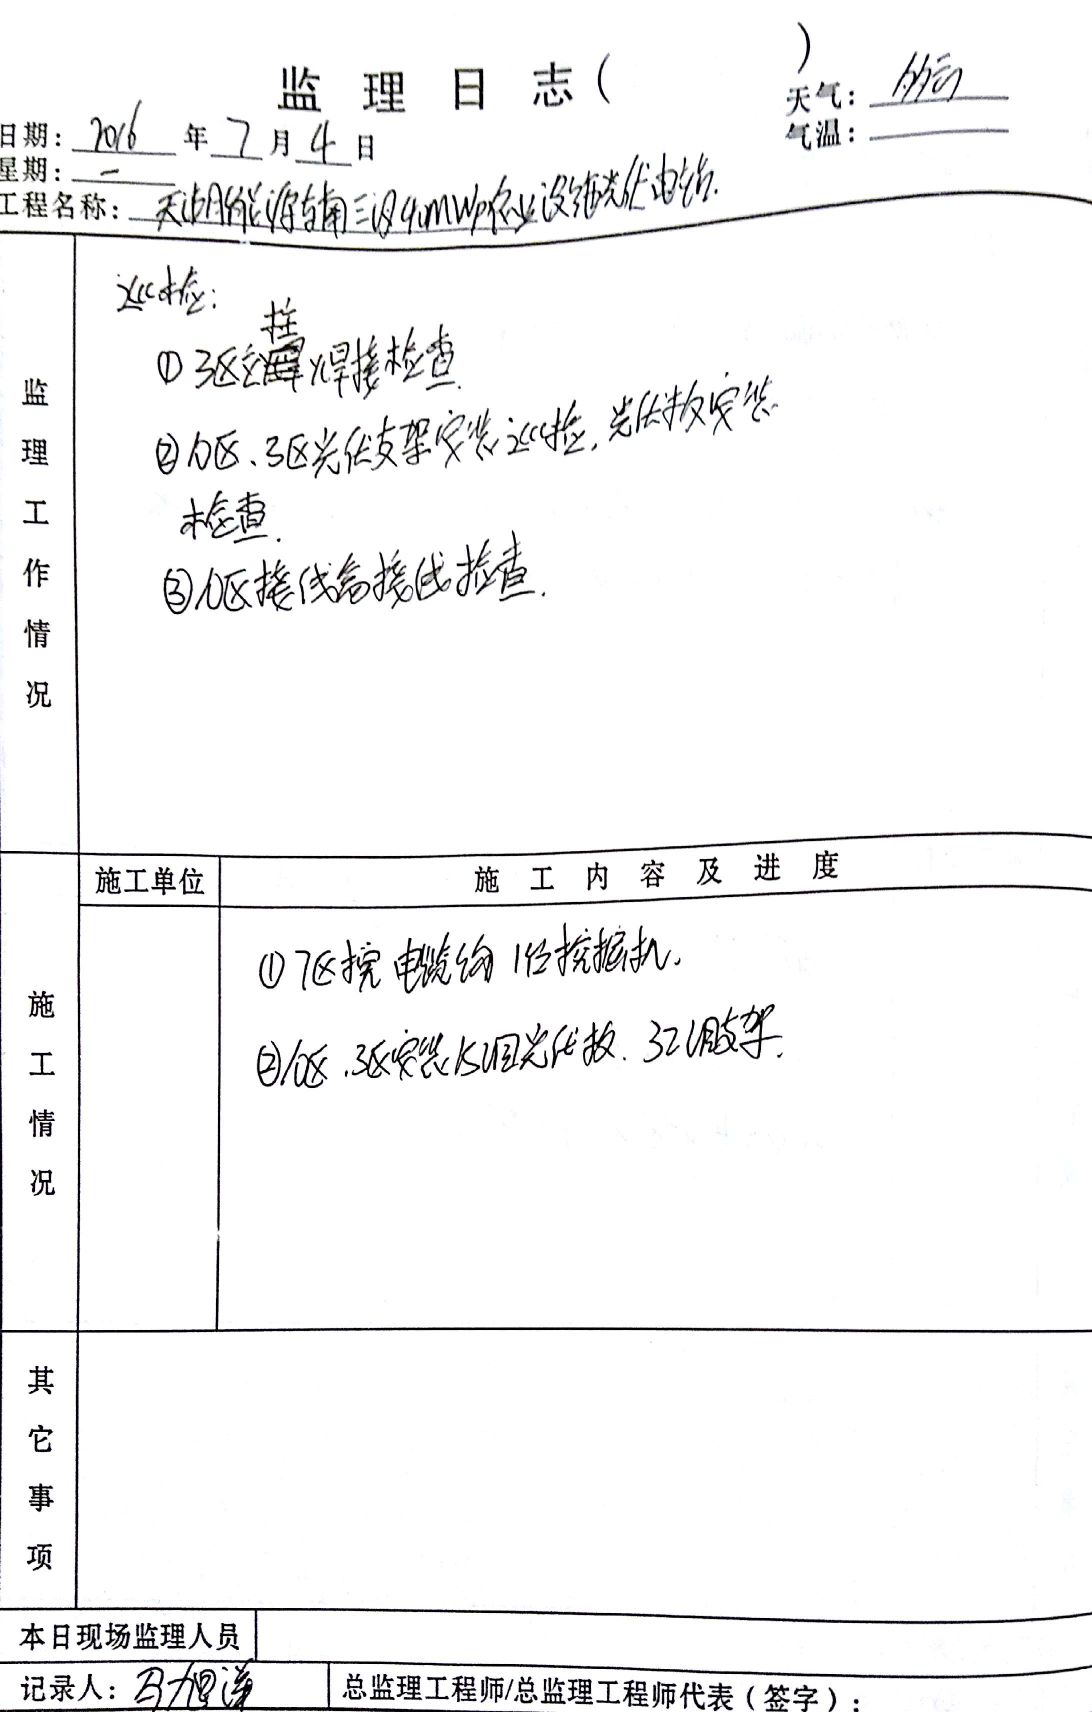 监理日志( )
天气：多云
日期：2016年7月4日
气温：
星期：一
工程名称：三设40MWp农业设施光伏电站.
监理工作情况
巡检：
①3区立柱焊接检查.
②10区、3区光伏支架安装巡检,光伏板安装
检查.
③10区接线盒接线检查.
施工单位
施工内容及进度
施工情况
①7区挖电缆沟 1台挖掘机.
②10区、3区安装15组光伏板、32组支架.
其它事项
本日现场监理人员
记录人：马旭洋
总监理工程师/总监理工程师代表(签字)：